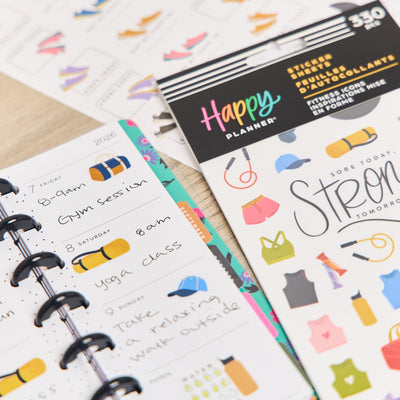 330
PCS
STICKER
SHEETS
FEUILLES
D'AUTOCOLLANTS
FITNESS ICONS
INSPIRATIONS MISE
EN FORME
Happy
PLANNER
SORE TODAY,
STRON
TOMORROW
2026
7 FRIDAY
8-9am
Gym session
8 SATURDAY
8am
yoga class
9 SUNDAY
Take
a relaxing
walk outside